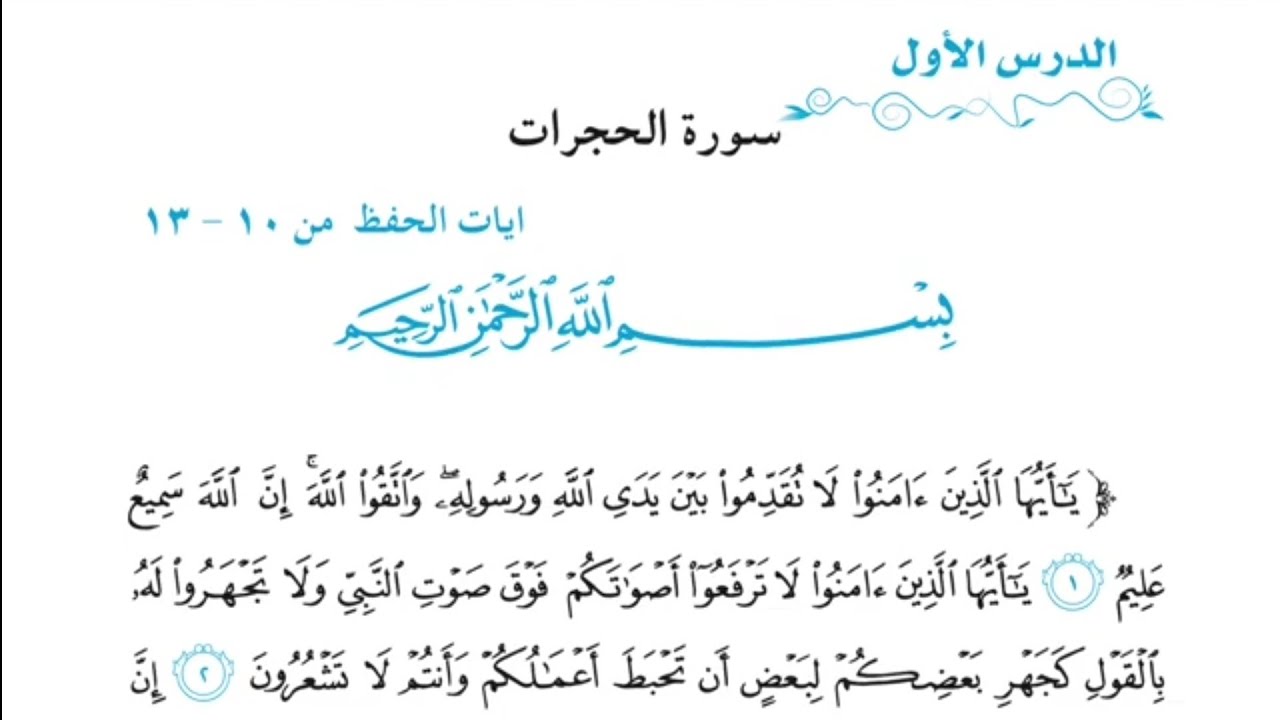 الدرس الأول
سورة الحجرات
ايات الحفظ من ١٠ - ١٣
بِسْمِ ٱللَّهِ ٱلرَّحْمَٰنِ ٱلرَّحِيمِ
﴿ يَٰٓأَيُّهَا ٱلَّذِينَ ءَامَنُوا۟ لَا تُقَدِّمُوا۟ بَيْنَ يَدَىِ ٱللَّهِ وَرَسُولِهِۦۖ وَٱتَّقُوا۟ ٱللَّهَۚ إِنَّ ٱللَّهَ سَمِيعٌ
عَلِيمٌ ١ يَٰٓأَيُّهَا ٱلَّذِينَ ءَامَنُوا۟ لَا تَرْفَعُوٓا۟ أَصْوَٰتَكُمْ فَوْقَ صَوْتِ ٱلنَّبِىِّ وَلَا تَجْهَرُوا۟ لَهُۥ
بِٱلْقَوْلِ كَجَهْرِ بَعْضِكُمْ لِبَعْضٍ أَن تَحْبَطَ أَعْمَٰلُكُمْ وَأَنتُمْ لَا تَشْعُرُونَ ٢ إِنَّ